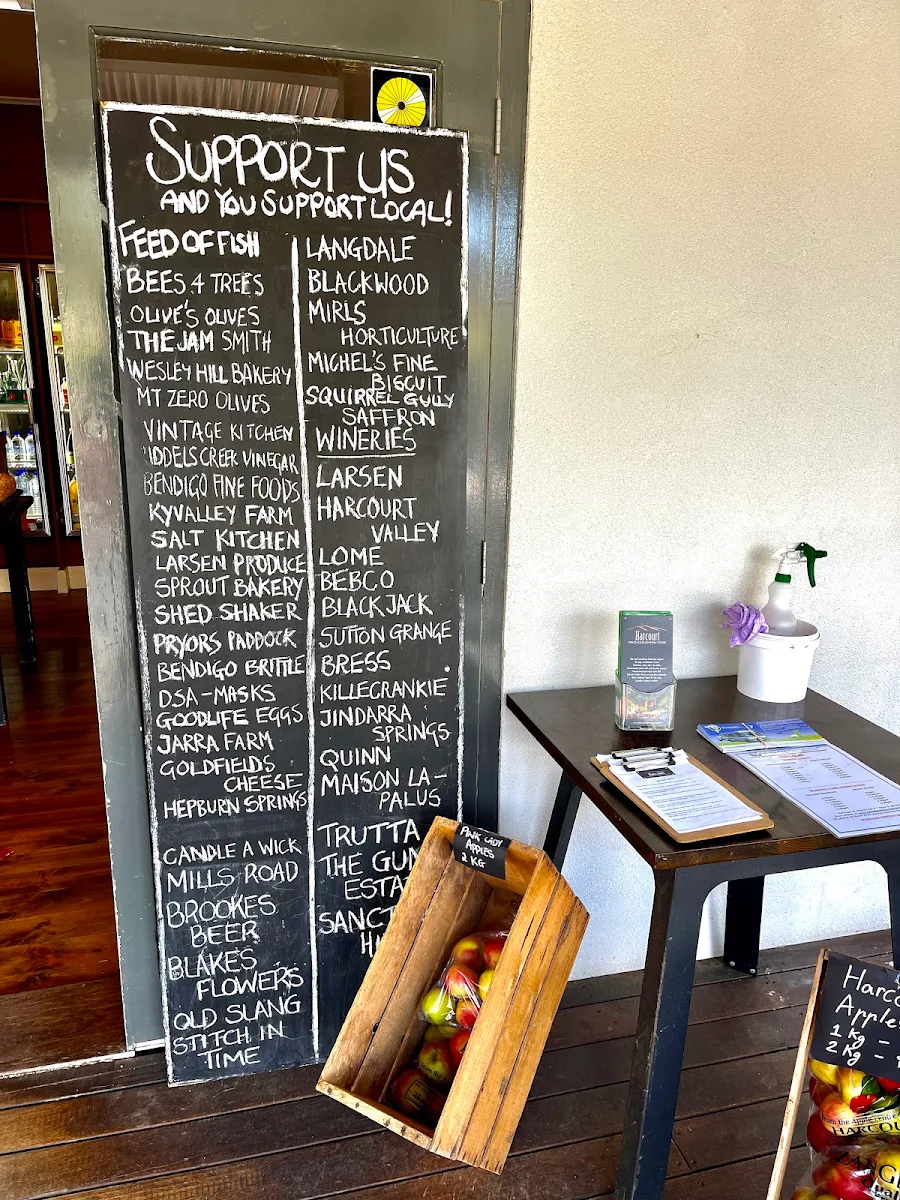 SUPPORT US
AND YOU SUPPORT LOCAL!
FEED OF FISH
BEES 4 TREES
OLIVE'S OLIVES
THE JAM SMITH
WESLEY HILL BAKERY
MT ZERO OLIVES
VINTAGE KITCHEN
IDDELS CREEK VINEGAR
BENDIGO FINE FOODS
KYVALLEY FARM
SALT KITCHEN
LARSEN PRODUCE
SPROUT BAKERY
SHED SHAKER
PRYORS PADDOCK
BENDIGO BRITTLE
DSA-MASKS
GOODLIFE EGGS
JARRA FARM
GOLDFIELDS
CHEESE
HEPBURN SPRINGS
CANDLE A WICK
MILLS ROAD
BROOKES
BEER
BLAKES
FLOWERS
OLD SLANG
STITCH IN
TIME
LANGDALE
BLACKWOOD
MIRLS
HORTICULTURE
MICHEL'S FINE
BISCUIT
SQUIRREL GULLY
SAFFRON
WINERIES
LARSEN
HARCOURT
VALLEY
LOME
BEBCO
BLACKJACK
SUTTON GRANGE
BRESS
KILLIECRANKIE
JINDARRA
SPRINGS
QUINN
MAISON LA-
PALUS
TRUTTA
THE GUN
ESTA
SANCT
H
PINK LADY
APPLES
2 KG
Harcourt
Harco
Apple
1 Kg -
2 Kg -
HARCOU